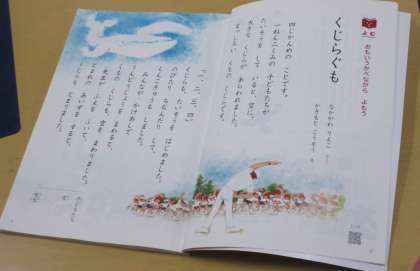 よむ
おもいうかべながら よもう
くじらぐも
なかがわ りえこ さく
かきもと こうぞう え
四じかんめの ことです。
一ねん二くみの 子どもたちが
たいそうを して いると、空に、
大きな くじらが あらわれました。
まっしろい くもの くじらです。
「一、二、三、四。」
くじらも、たいそうを はじめました。
のびたり ちぢんだり して、
しんこきゅうも しました。
みんなが かけあしで
うんどうじょうを まわると、
くもの くじらも、空を まわりました。
せんせいが ふえを ふいて、
とまれの あいずを すると、
くじらも とまりました。